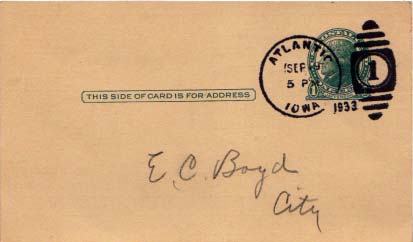 ATLANTIC
SEP 9
5 PM
IOWA
1933
1
THIS SIDE OF CARD IS FOR ADDRESS
E. C. Boyd
City